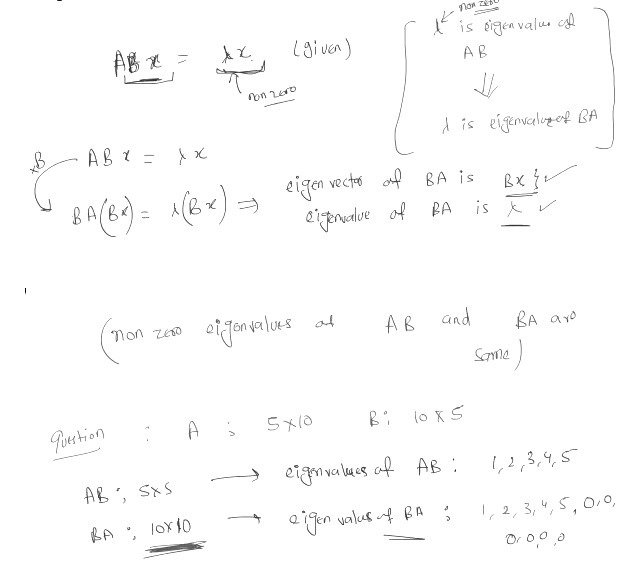 ABx = λx (given)
non zero
non zero
λ is eigenvalue of
AB
⇓
λ is eigenvalue of BA
×B
ABx = λx
BA(Bx) = λ(Bx) ⇒ eigenvector of BA is Bx } ✓
eigenvalue of BA is λ ✓
(non zero eigenvalues of AB and BA are
same)
Question : A : 5×10 B : 10×5
AB : 5×5 → eigenvalues of AB : 1, 2, 3, 4, 5
BA : 10×10 → eigenvalues of BA : 1, 2, 3, 4, 5, 0, 0,
0, 0, 0